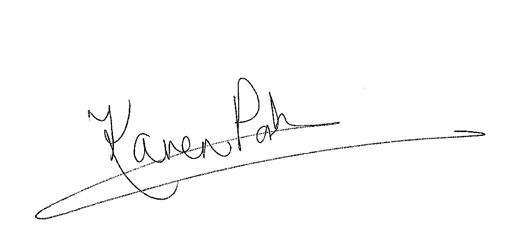 Karen Pah